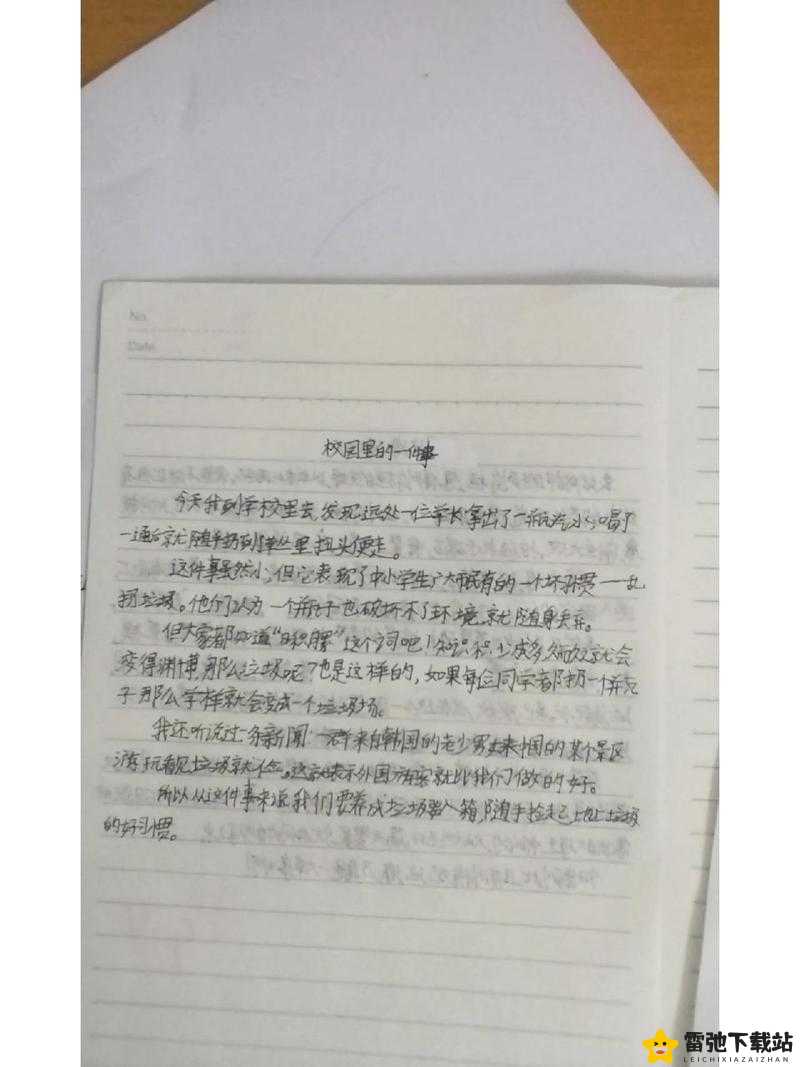 No.
Date
校园里的一件事
今天我到学校里去,发现远处一位学长拿出了一瓶汽水,口喝了
一通后就随手扔到草丛里扭头便走。
这件事虽然小,但它表现了中小学生广大市民有的一个坏习惯——乱
扔垃圾。他们认为一个瓶子也破坏不了环境,就随身丢弃。
但大家都知道“日积月累”这个词吧!知识积少成多渐渐就会
变得渊博,那么垃圾呢?也是这样的,如果每位同学都扔一个瓶
子那么学样就会变成一个垃圾场。
我还听说过一条新闻:一群来自韩国的老少男女来中国的某个景区
游玩看见垃圾就捡。这就表示外国游客就比我们做的好。
所以从这件事来说我们要养成垃圾入箱,随手捡起地上垃圾
的好习惯。
雷弛下载站
LEICHIXIAZAIZHAN